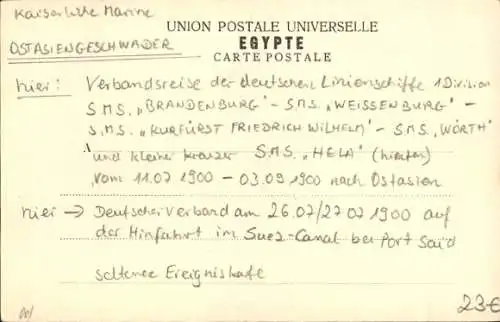 Kaiserliche Marine
OSTASIENGESCHWADER
UNION POSTALE UNIVERSELLE
EGYPTE
CARTE POSTALE
hier: Verbandsreise der deutschen Linienschiffe 1 Division
S.M.S. „BRANDENBURG" - S.M.S. „WEISSENBURG" -
S.M.S. „KURFÜRST FRIEDRICH WILHELM" - S.M.S. „WÖRTH"
A
und kleiner Kreuzer S.M.S. „HELA" (hinten)
vom 11.07 1900 - 03.09 1900 nach Ostasien
hier → Deutscher Verband am 26.07/27.07 1900 auf
der Hinfahrt im Suez-Canal bei Port Said
seltene Ereigniskarte
23€